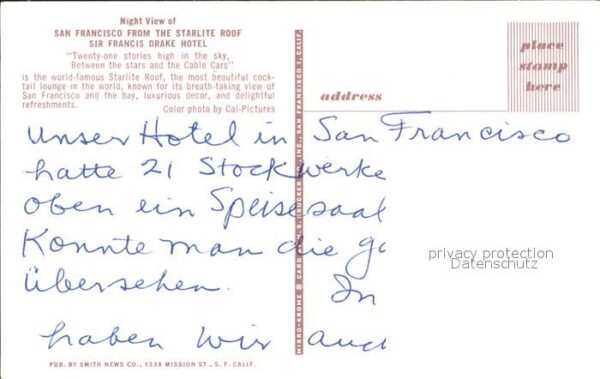 Night View of
SAN FRANCISCO FROM THE STARLITE ROOF
SIR FRANCIS DRAKE HOTEL
"Twenty-one stories high in the sky,
Between the stars and the Cable Cars"
is the world-famous Starlite Roof, the most beautiful cock-
tail lounge in the world, known for its breath-taking view of
San Francisco and the bay, luxurious decor, and delightful
refreshments.
Color photo by Cal-Pictures
place
stamp
here
address
Unser Hotel in San Francisco
hatte 21 Stockwerke
oben ein Speisesaal
Konnte man die
übersehen. In
haben wir auch
privacy protection
Datenschutz
MIRRO-KROME ® CARD BY H. S. CROCKER CO., INC., SAN FRANCISCO 1, CALIF.
PUB. BY SMITH NEWS CO., 1338 MISSION ST., S. F. CALIF.